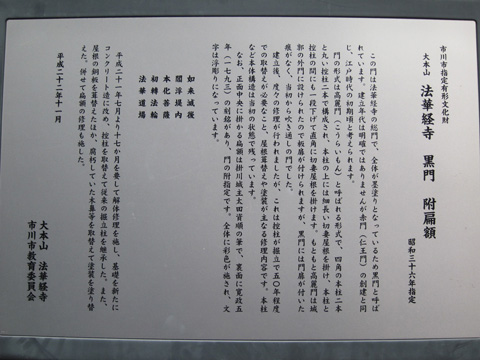 市川市指定有形文化財
大本山 法華経寺 黒門 附扁額
昭和三十六年指定
この門は法華経寺の総門で、全体が墨塗りとなっているため黒門と呼ば
れています。建立年代は明確ではありませんが赤門(仁王門)の創建と同
じ、江戸時代の初期頃と考えられます。
門の形式は高麗門(こうらいもん)と呼ばれる形式で、四角の本柱二本
と丸い控柱二本で構成され、本柱の上には細長い切妻屋根を掛け、本柱と
控柱の間にも一段下げて直角に切妻屋根を掛けます。もともと高麗門は城
郭の外門に設けられたので板扉が付けられますが、黒門には門扉が付いた
痕がなく、当初から吹き通しの門でした。
建立後、度々の修理が行われましたが、これは控柱が掘立で五〇年程度
での取替えが必要なことと、屋根葺替えや塗装が主なる修理内容です。本柱
など本体構造は当初の状態で残っています。
なお、正面中央に掛かる扁額は掛川城主太田資順の筆で、裏面に寛政五
年(一七九三)の刻銘があり、門の附指定です。全体に彩色が施され、文
字は浮彫りになっています。
如来滅後
閻浮堤内
本化菩薩
初転法輪
法華道場
平成二十一年七月より十七か月を要して解体修理を施し、基礎を新たに
コンクリート造に改め、控柱を取替えて従来の掘立柱を継承した。また、
屋根の銅板を葺替えたほか、腐朽していた木幕等を取替えて塗装を塗り替
えた。併せて扁額の修理も施した。
平成二十二年十一月
大本山 法華経寺
市川市教育委員会